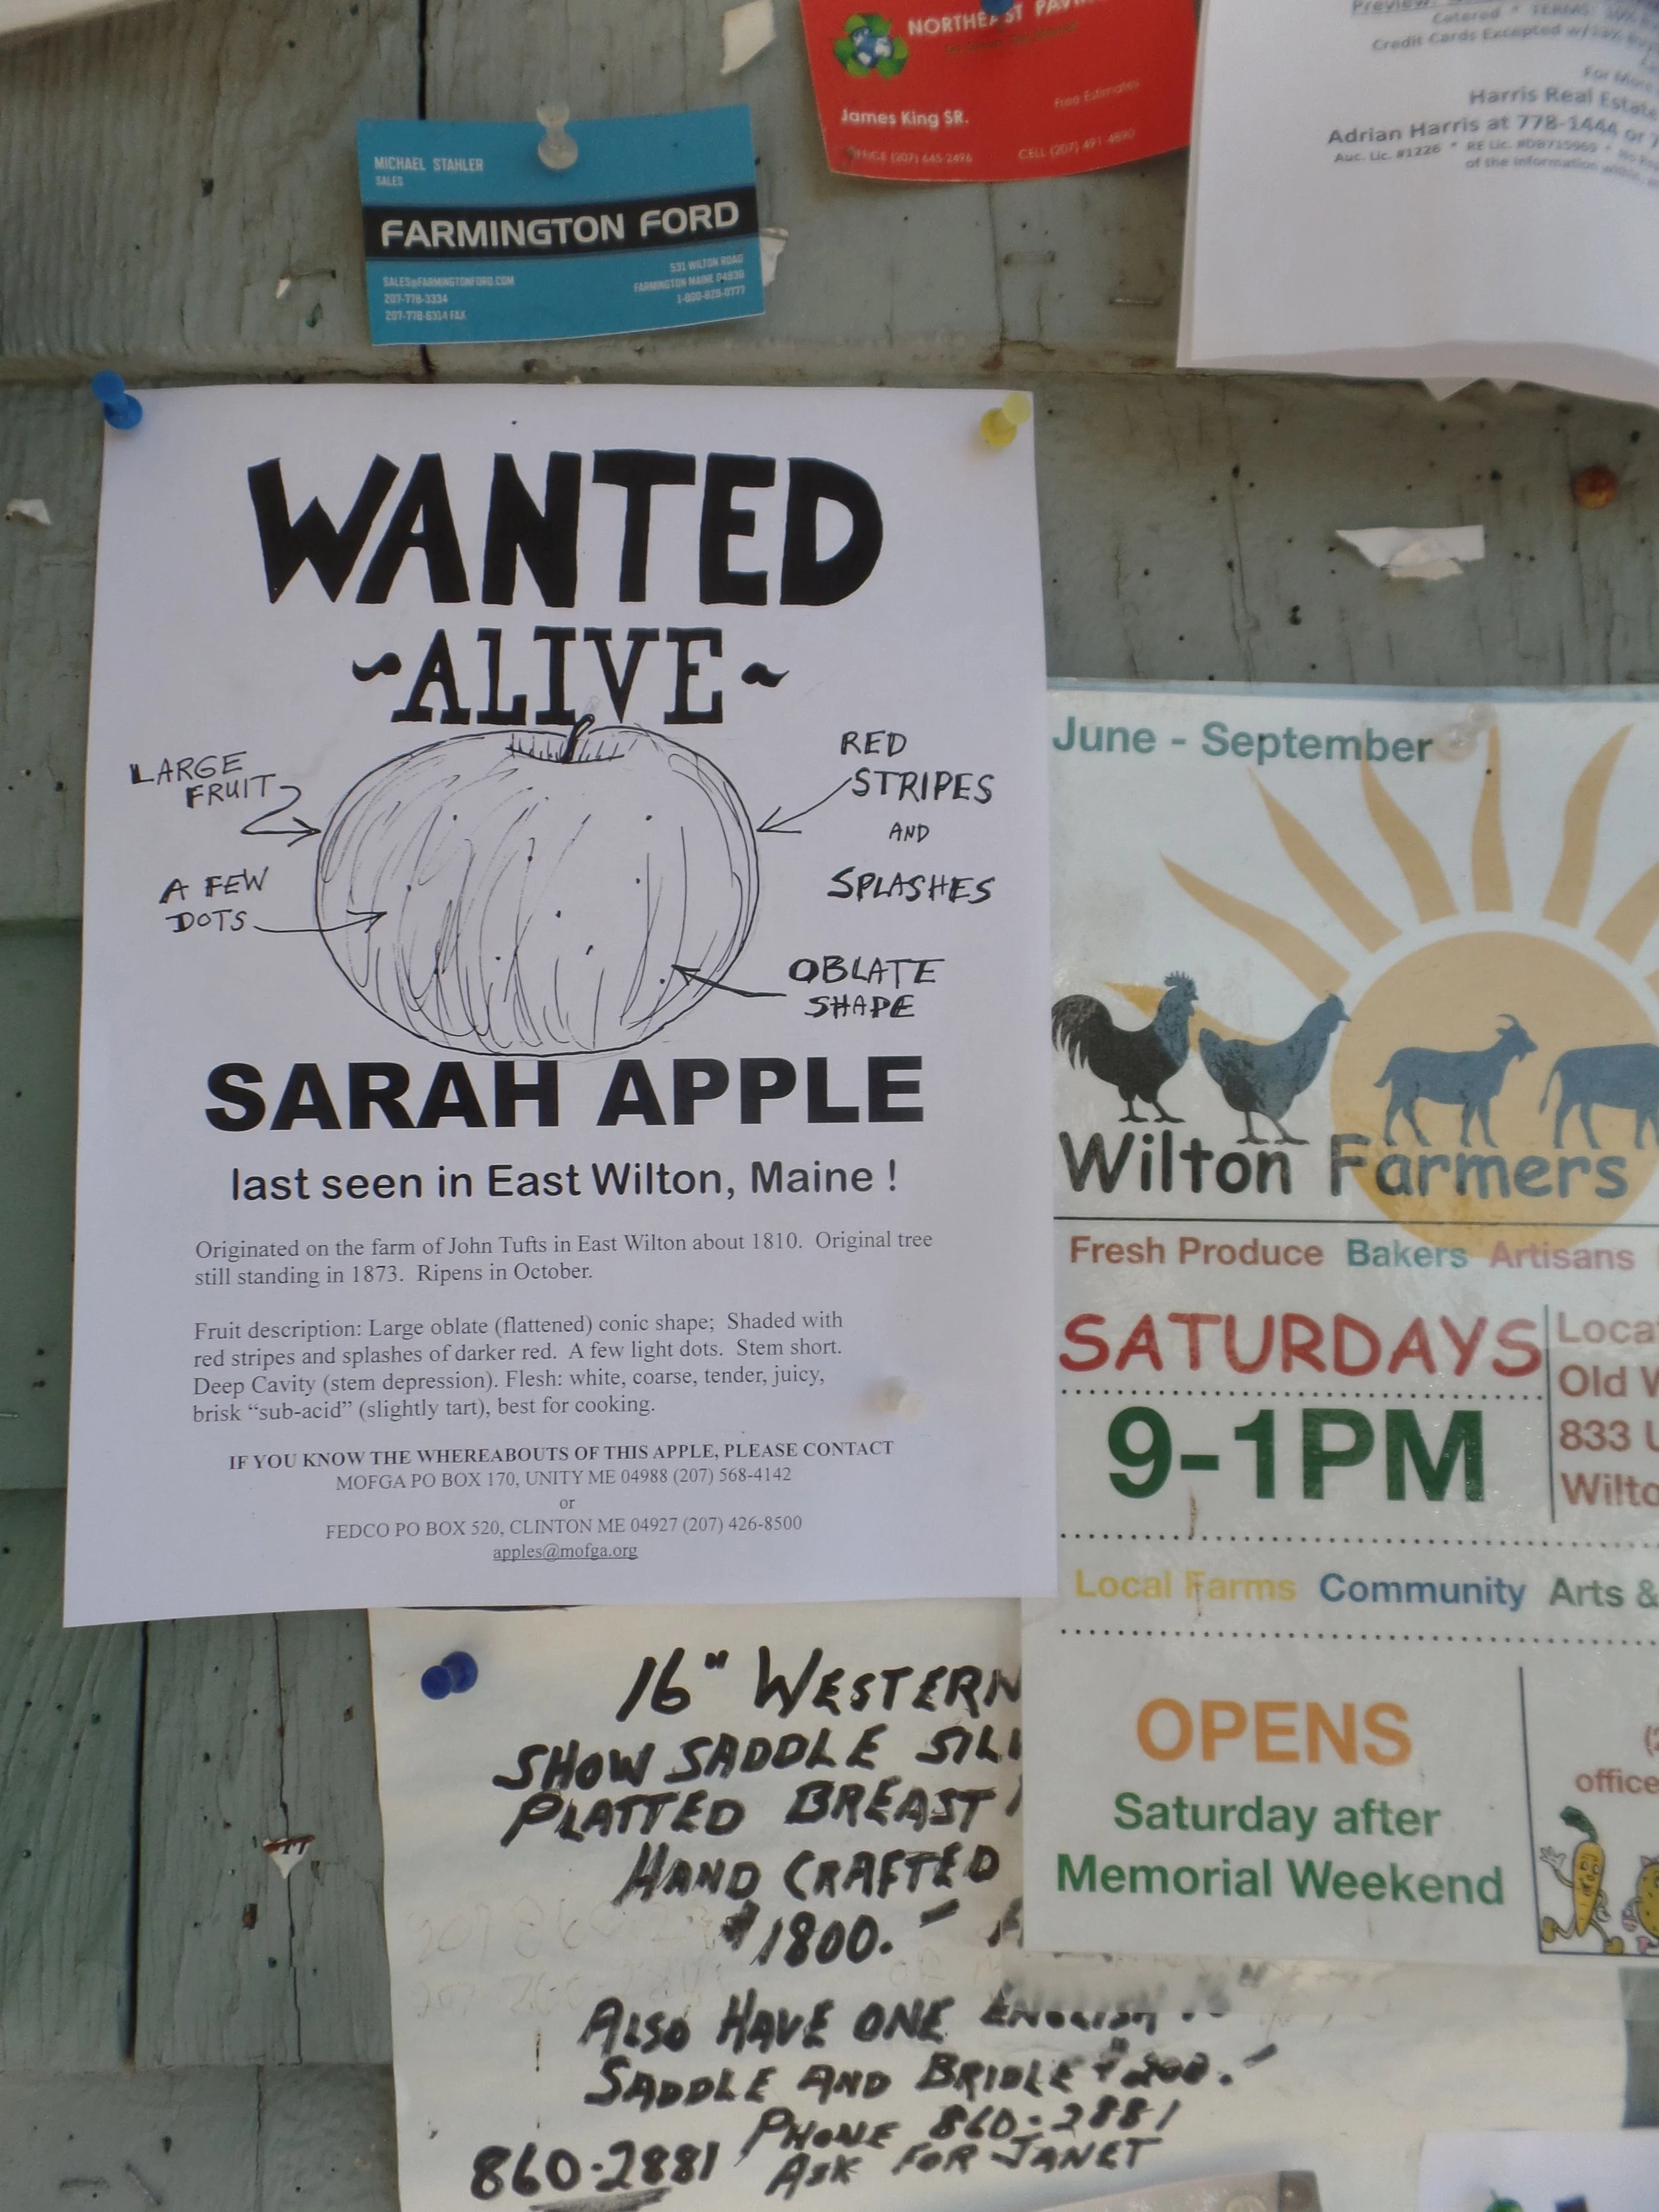 NORTHEAST PAVI
James King SR.
Free Estimates
OFFICE (207) 645-2496
CELL (207) 491-4890
Catered * TERMS: 10%
Credit Cards Excepted w/
For More
Harris Real Estate
Adrian Harris at 778-1444 or 7
Auc. Lic. #1226 * RE Lic. #DB715969 * No
of the information within,
MICHAEL STAHLER
SALES
FARMINGTON FORD
SALES@FARMINGTONFORD.COM
207-778-3334
207-778-6314 FAX
531 WILTON ROAD
FARMINGTON MAINE 04938
1-800-829-0777
WANTED
~ALIVE~
LARGE
FRUIT
A FEW
DOTS
RED
STRIPES
AND
SPLASHES
OBLATE
SHAPE
SARAH APPLE
last seen in East Wilton, Maine !
Originated on the farm of John Tufts in East Wilton about 1810. Original tree
still standing in 1873. Ripens in October.
Fruit description: Large oblate (flattened) conic shape; Shaded with
red stripes and splashes of darker red. A few light dots. Stem short.
Deep Cavity (stem depression). Flesh: white, coarse, tender, juicy,
brisk “sub-acid” (slightly tart), best for cooking.
IF YOU KNOW THE WHEREABOUTS OF THIS APPLE, PLEASE CONTACT
MOFGA PO BOX 170, UNITY ME 04988 (207) 568-4142
or
FEDCO PO BOX 520, CLINTON ME 04927 (207) 426-8500
apples@mofga.org
June - September
Wilton Farmers
Fresh Produce Bakers Artisans
SATURDAYS
9-1PM
Loca
Old W
833 U
Wilto
Local Farms Community Arts &
OPENS
Saturday after
Memorial Weekend
(2
office
16" WESTERN
SHOW SADDLE SIL
PLATTED BREAST
HAND CRAFTED
$1800.-
ALSO HAVE ONE ENGLISH
SADDLE AND BRIDLE $200.-
PHONE 860-2881
860-2881 ASK FOR JANET